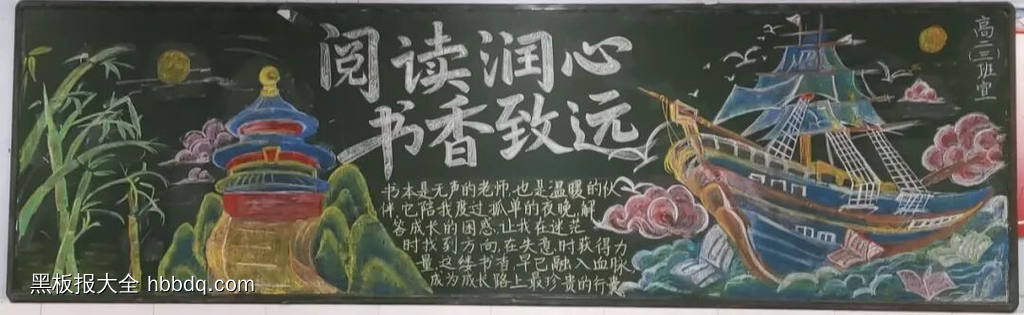 阅读润心
书香致远
书本是无声的老师,也是温暖的伙
伴,它陪我度过孤单的夜晚,解
答成长的困惑,让我在迷茫
时找到方向,在失意时获得力
量,这缕书香早已融入血脉
成为成长路上最珍贵的行囊
高二(三)班宣
黑板报大全 hbbdq.com